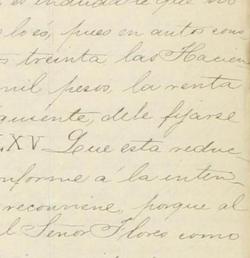 es indudable que no
lo es, pues en autos cons
treinta las Hacien
mil pesos, la renta
guiente, debe fijarse
XV Que esta reduc
onforme á la inten
reconviene, porque al
l Señor Flores como